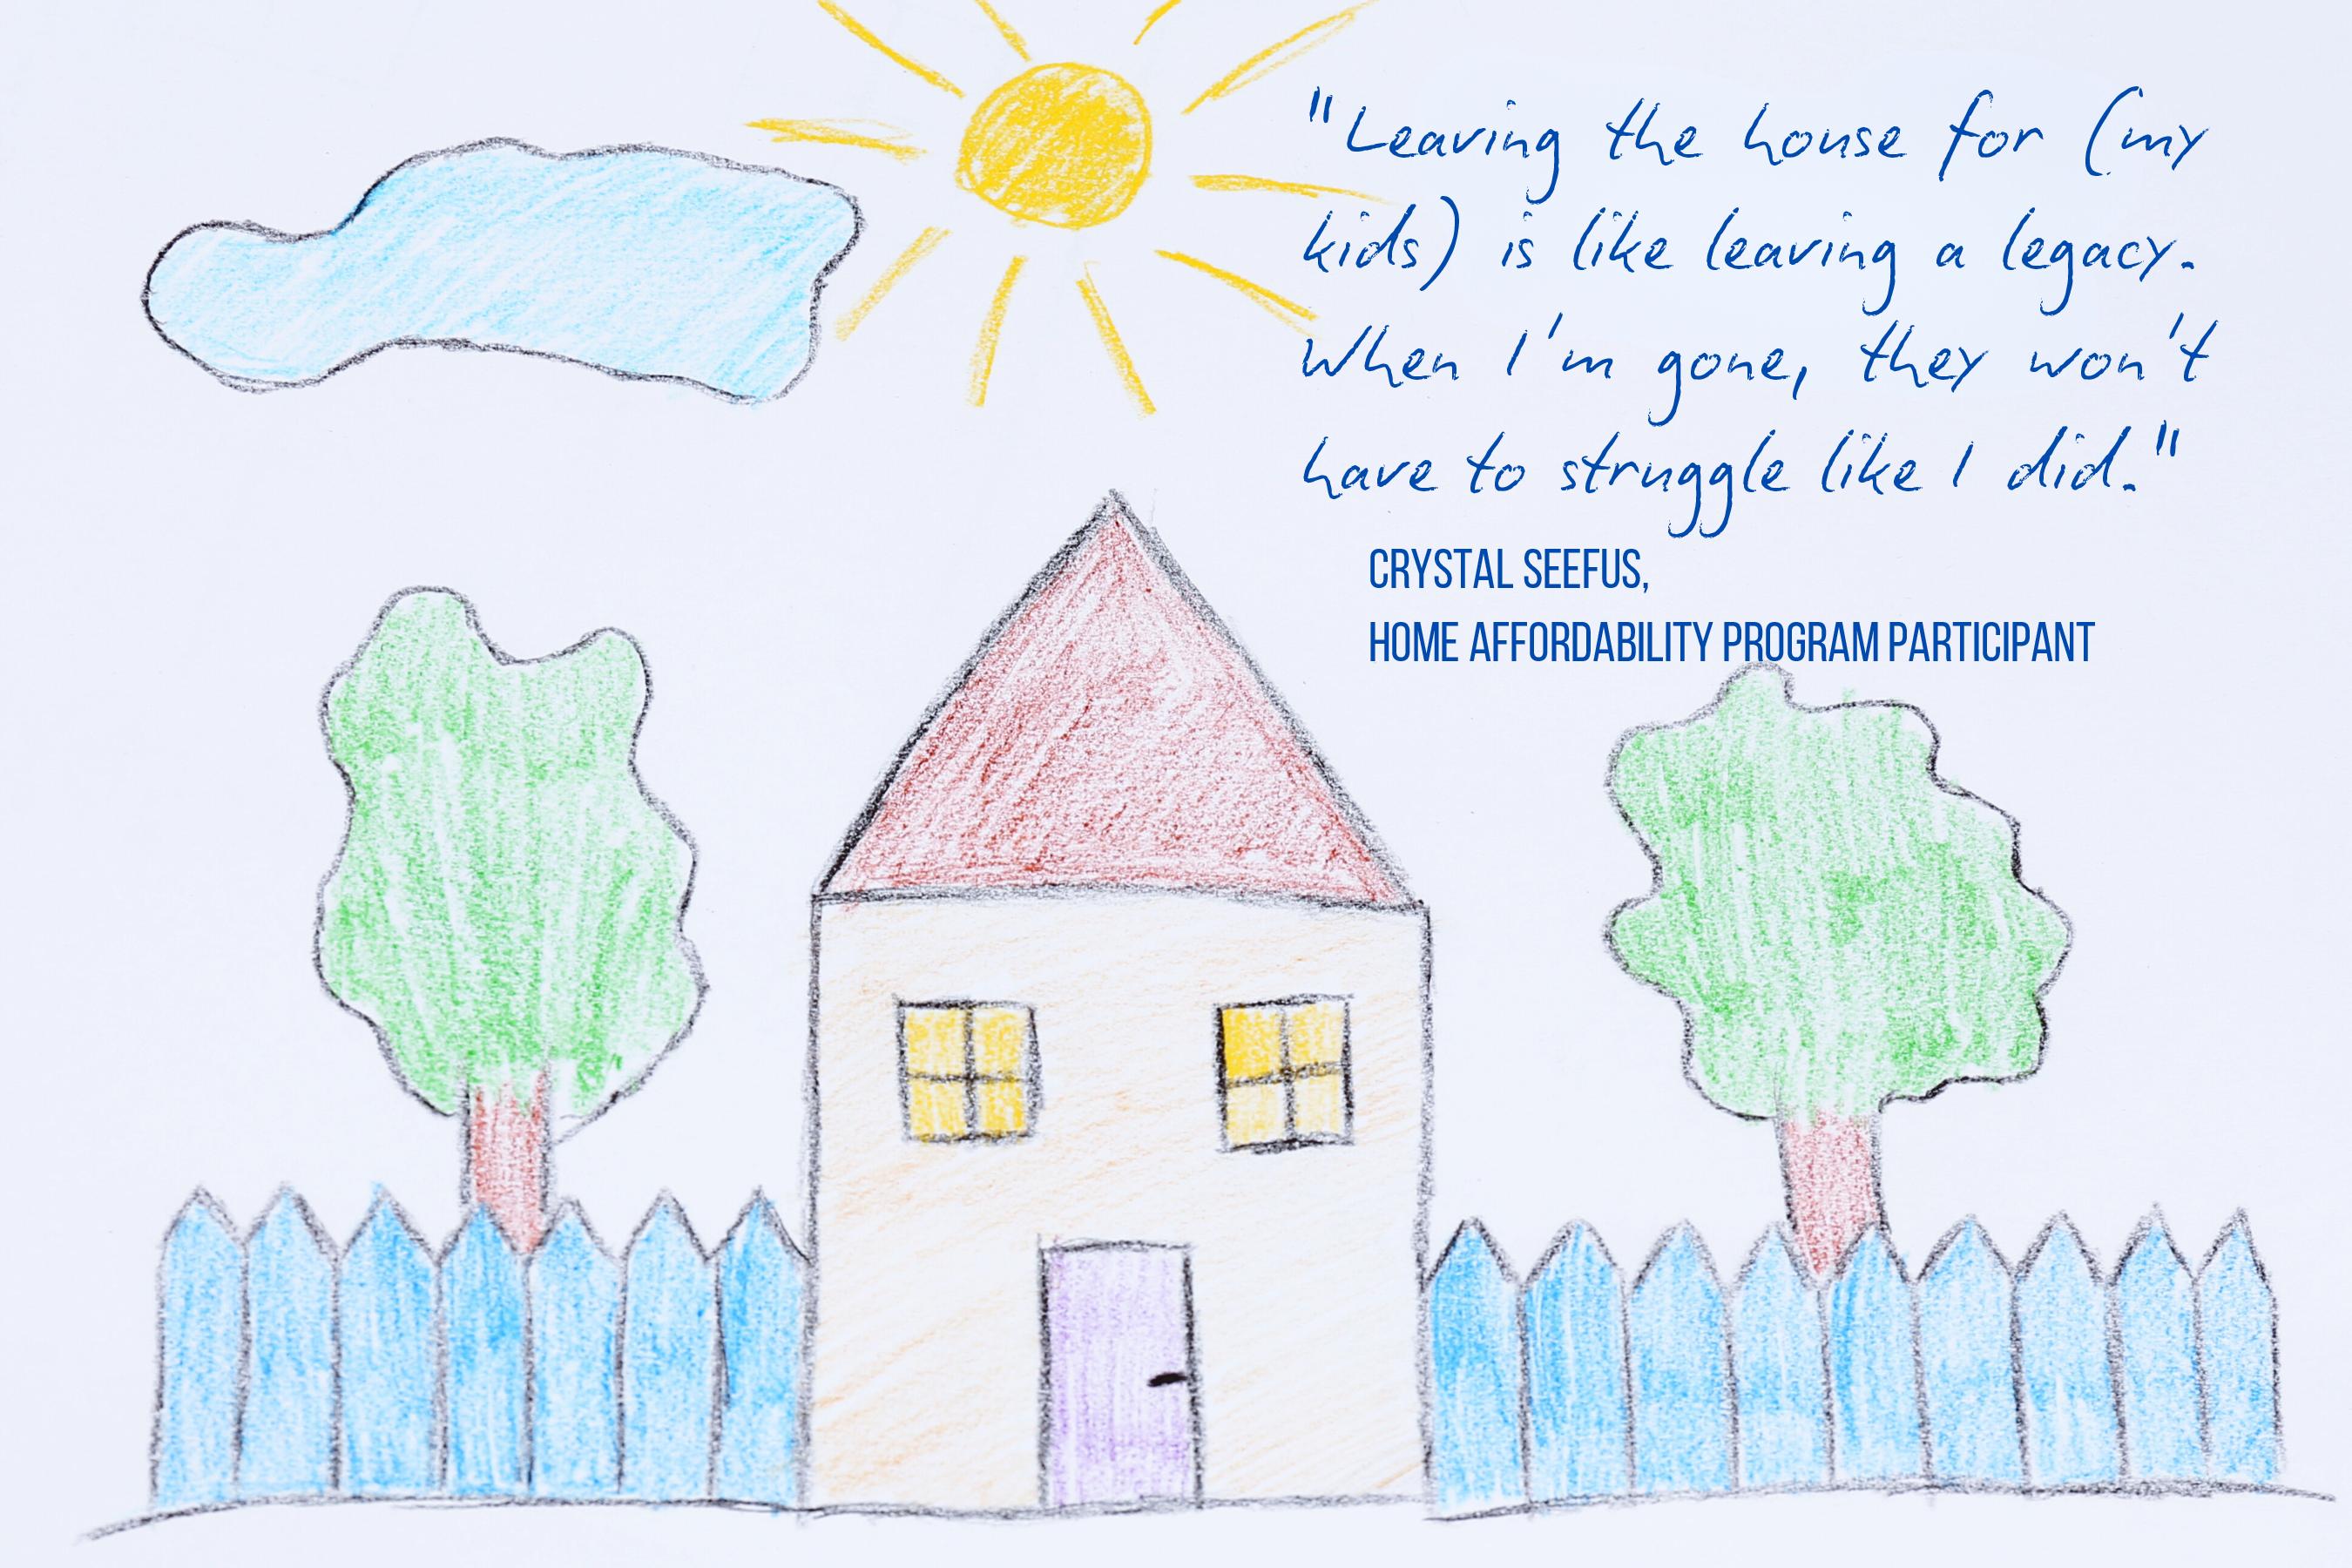 "Leaving the house for (my
kids) is like leaving a legacy.
When I'm gone, they won't
have to struggle like I did."
CRYSTAL SEEFUS,
HOME AFFORDABILITY PROGRAM PARTICIPANT